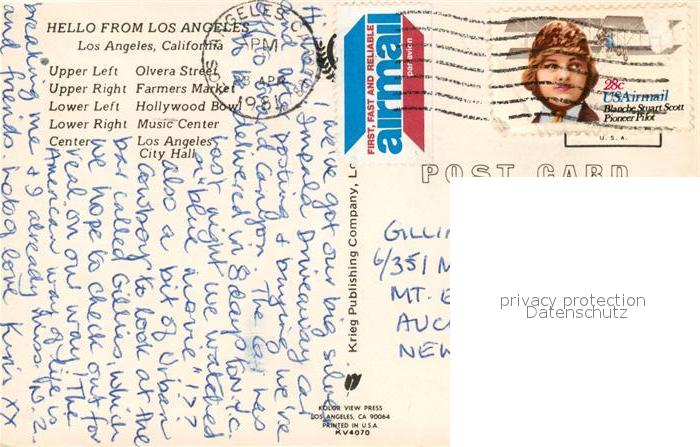 HELLO FROM LOS ANGELES
Los Angeles, California
Upper Left Olvera Street
Upper Right Farmers Market
Lower Left Hollywood Bowl
Lower Right Music Center
Center Los Angeles
City Hall
ANGELES, C
PM
APR
1981
FIRST, FAST AND RELIABLE
airmail
par avion
28c
USAirmail
Blanche Stuart Scott
Pioneer Pilot
U.S.A.
POST CARD
Krieg Publishing Company, Lo
KOLOR VIEW PRESS
LOS ANGELES, CA 90064
PRINTED IN U.S.A.
KV4070
GILLI
6/351 M
MT. E
AUC
NEW
privacy protection
Datenschutz
we've got our big silver
Impala Driveaway car
+ buying we're
Grand Canyon. The car has
to be delivered in 8 days to N.Y.C.
last night we watched
a "blue movie" !??
also a bit of Urban
Cowboy to look at the
bar called Gillies, which
we hope to check out for
real on our way! The
American way of life is
breaking me & I already miss N.Z
and friends. hotog love Kim xx